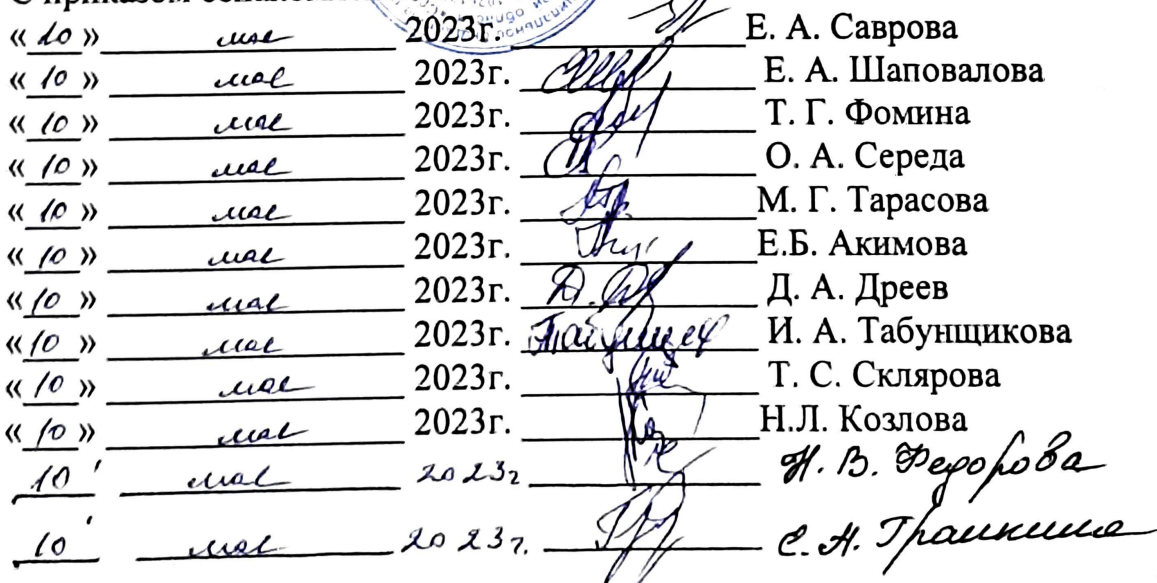 «10» мая 2023г. Е. А. Саврова
«10» мая 2023г. Е. А. Шаповалова
«10» мая 2023г. Т. Г. Фомина
«10» мая 2023г. О. А. Середа
«10» мая 2023г. М. Г. Тарасова
«10» мая 2023г. Е.Б. Акимова
«10» мая 2023г. Д. А. Дреев
«10» мая 2023г. И. А. Табунщикова
«10» мая 2023г. Т. С. Склярова
«10» мая 2023г. Н.Л. Козлова
10 мая 2023г Н. В. Федорова
10 мая 2023г. С. Н. Гранкина